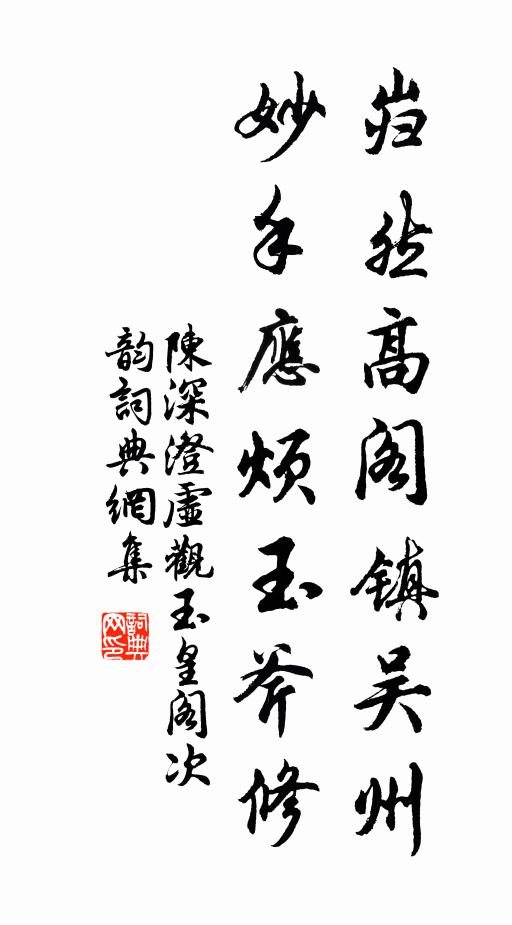 岿然高阁镇吴州
妙手應烦玉斧修
陳深澄虛觀玉皇阁次
韵詞典網集
詞典网印